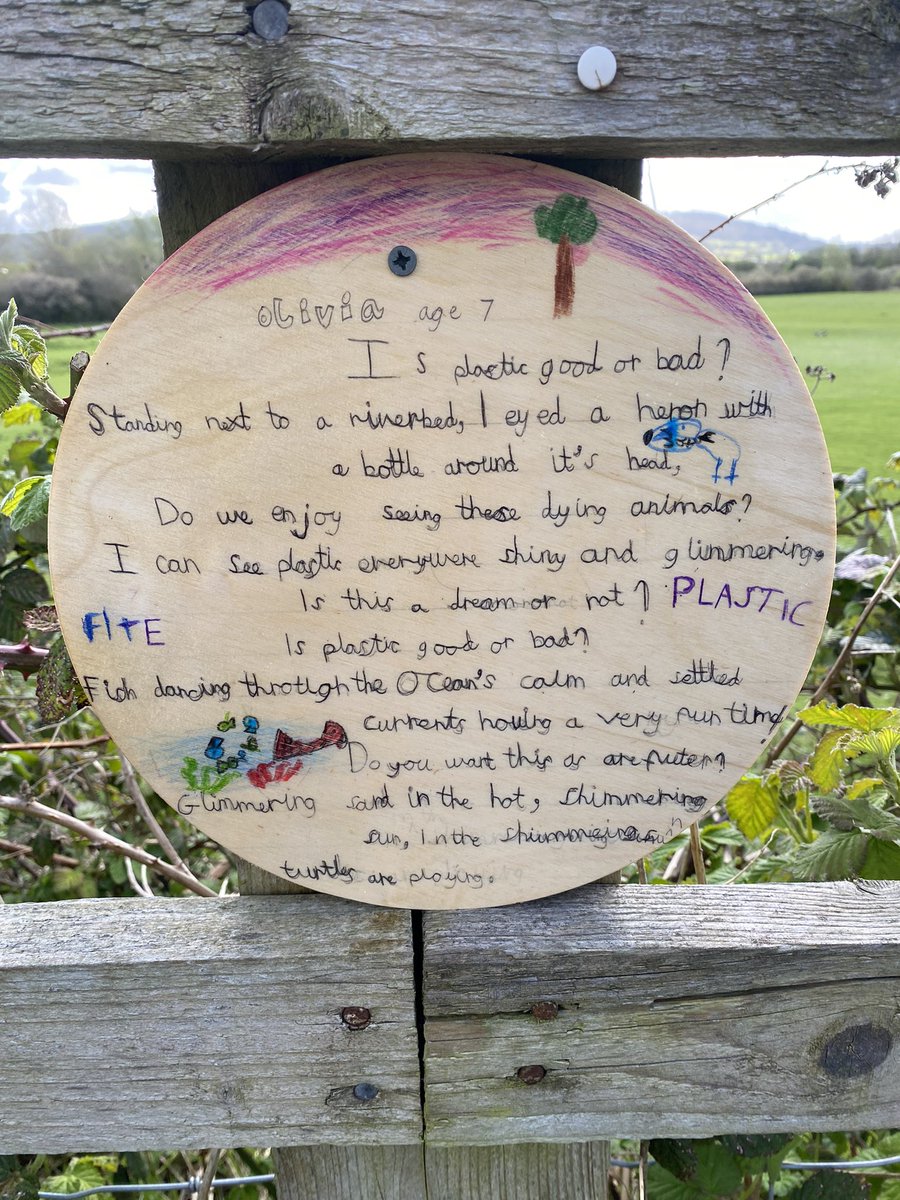 Olivia age 7
Is plastic good or bad?
Standing next to a riverbed, I eyed a heron with
a bottle around it's head,
Do we enjoy seeing these dying animals?
I can see plastic everywere shiny and glimmering.
Is this a dream or not?
FITE PLASTIC
Is plastic good or bad?
Fish dancing through the Ocean's calm and settled
currents having a very fun time,
Do you want this as are futer?
Glimmering sand in the hot, shimmering
sun, In the shimmering
turtles are playing.